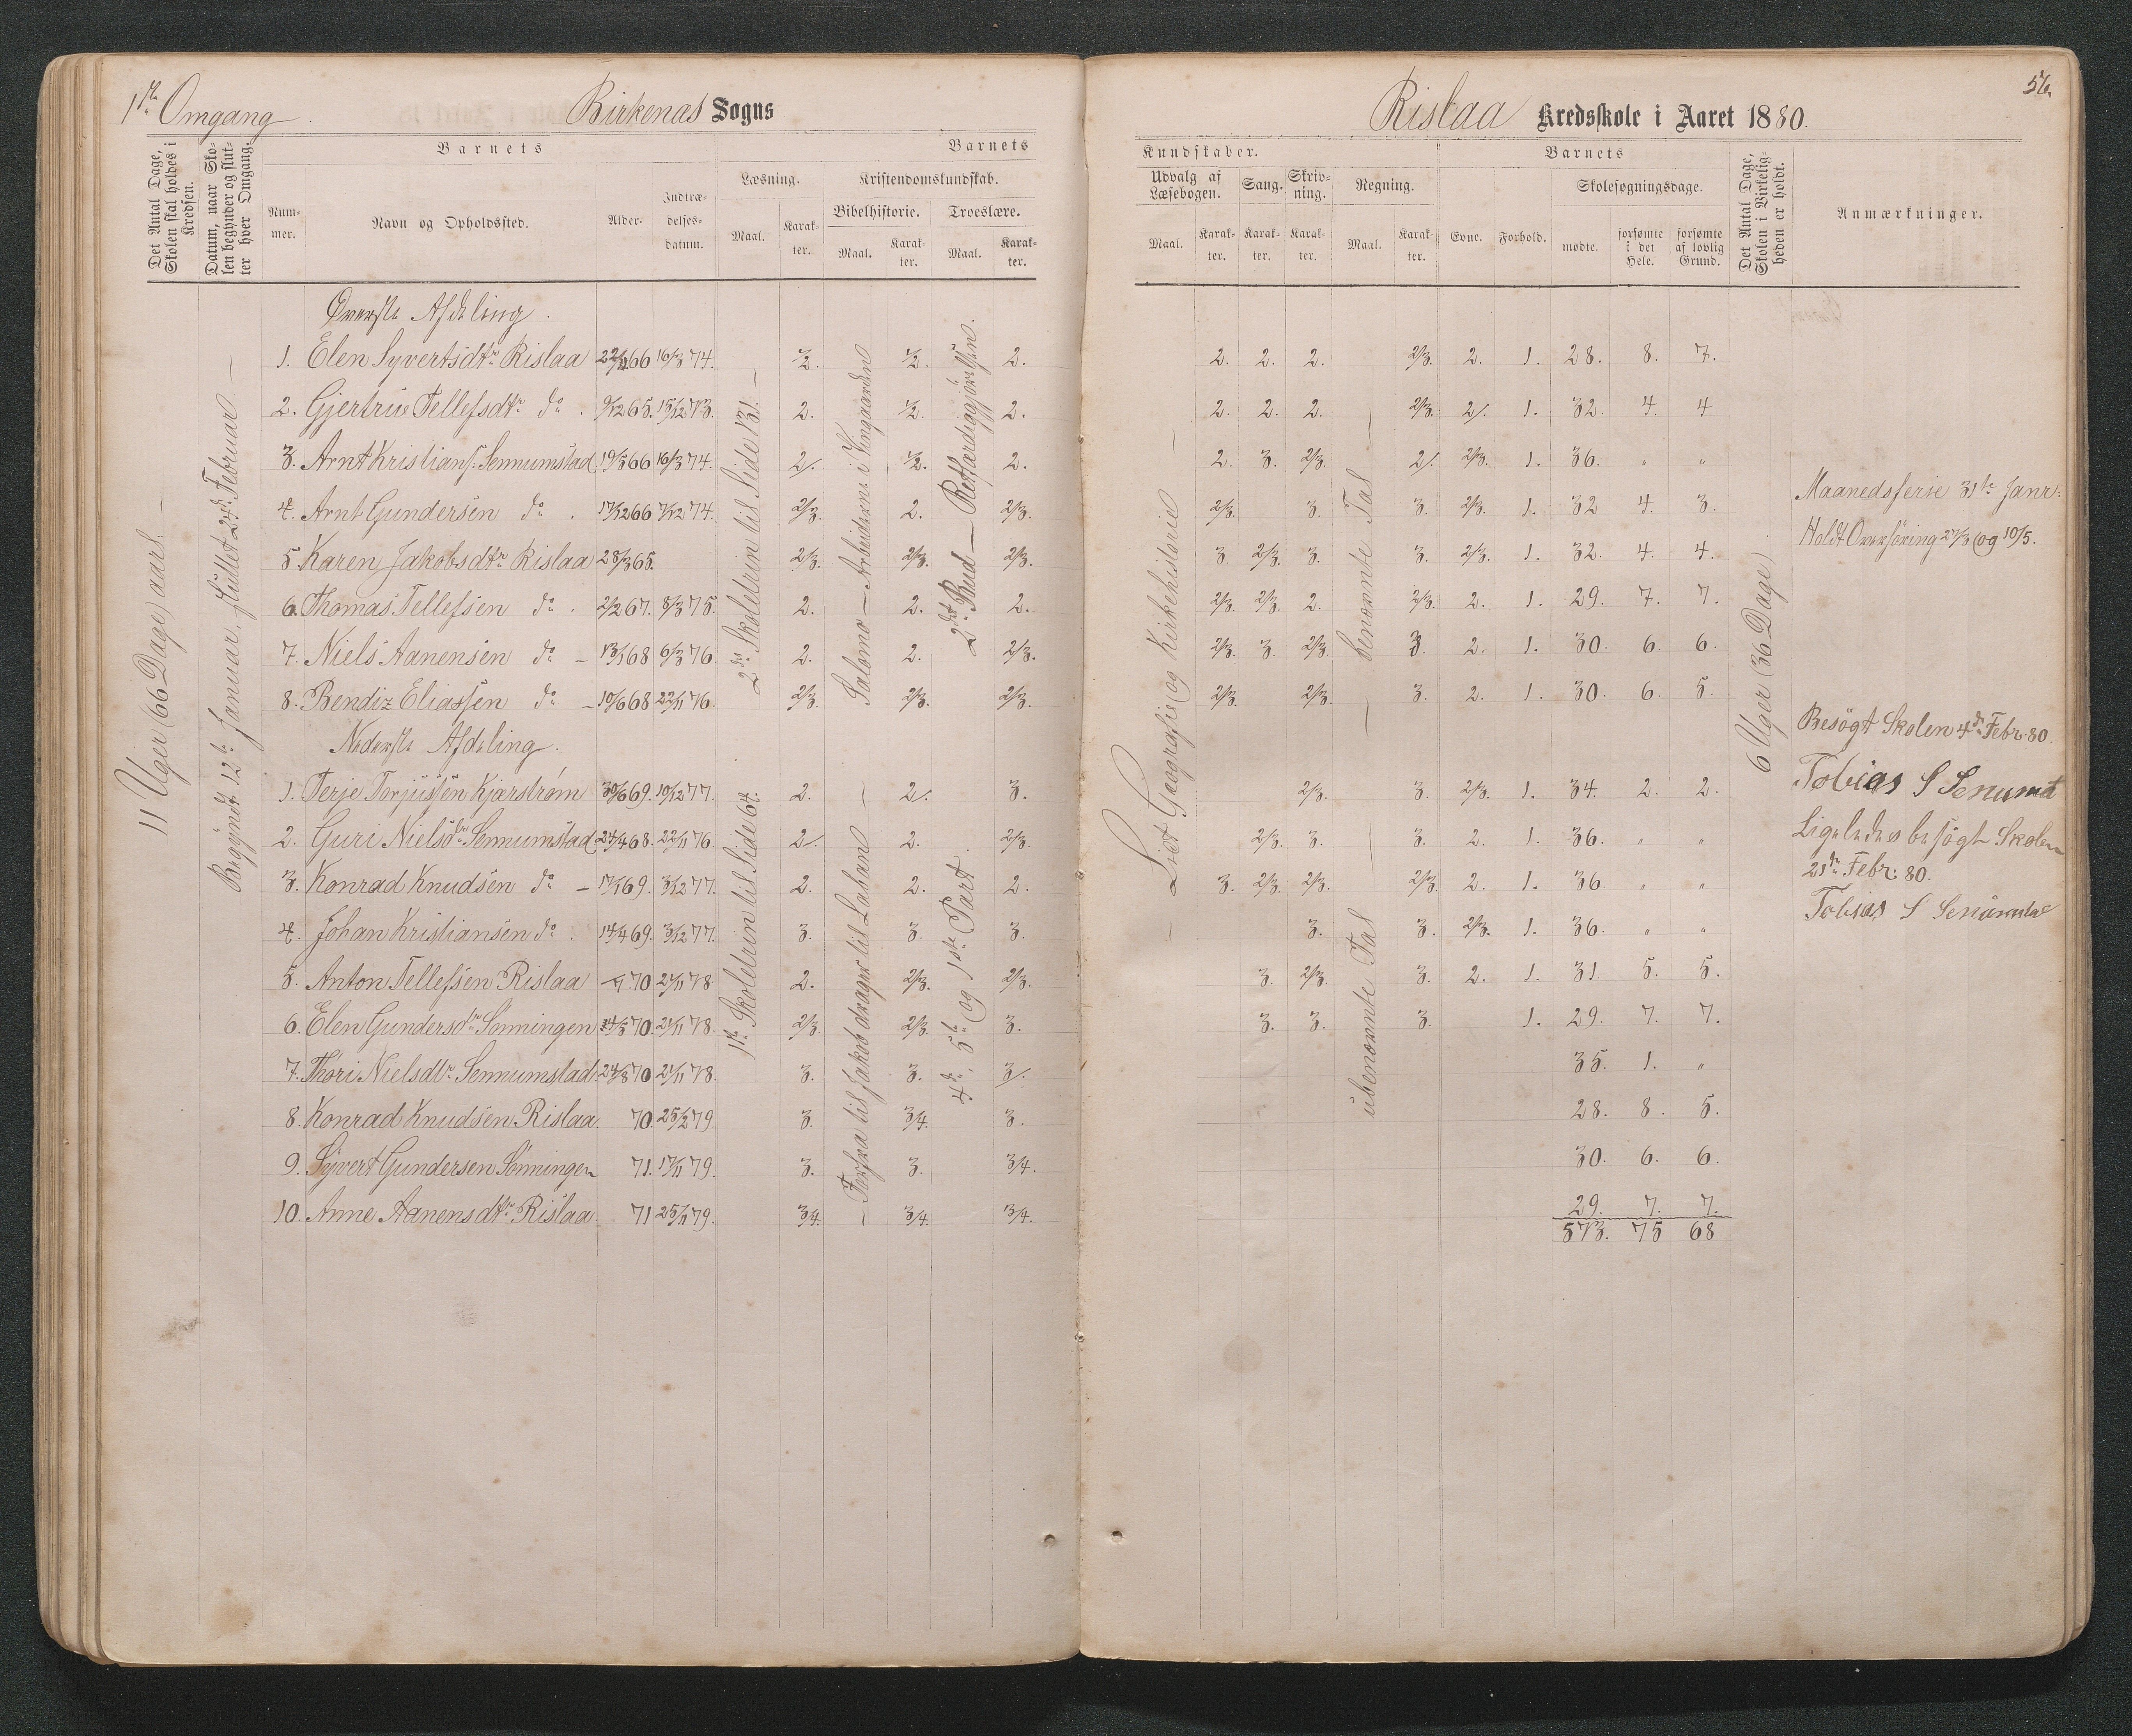 1ste Omgang.
Birkenæs Sogns
Det Antal Dage, Skolen skal holdes i Kredsen.
Datum, naar Skolen begynder og slutter hver Omgang.
Barnets
Nummer.
Navn og Opholdssted.
Alder.
Indtrædelsesdatum.
Barnets
Læsning.
Maal.
Karakter.
Kristendomskundskab.
Bibelhistorie.
Maal.
Karakter.
Troeslære.
Maal.
Karakter.
11 Uger (66 Dage) aarl. —
Begÿndt 12te Januar, sluttet 24de Februar —
2den Skoletrin til Side 131. —
1ste Skoletrin til Side 64.
Salomo — Arbeiderne i Vingaarden
— Forfra til Jakob drager til Laban —
2det Bud — Retfærdiggjørelsen.
4de, 5te og 1ste Part
Øverste Afdeling.
1. Elen Syvertsdtr Rislaa 22/11 66 16/3 74. 1/2. 1/2. 2.
2. Gjertrue Tellefsdtr do. 9/12 65. 15/12 73. 2. 1/2. 2.
3. Arnt Kristians. Sennumstad 19/5 66 16/3 74. 2/. 1/2. 2.
4. Arnt Gundersen do. 17/12 66 7/12 74. 2/3. 2. 2/3.
5. Karen Jakobsdtr Rislaa 28/3 65. 2/3. 2/3. 2/3.
6. Thomas Tellefsen do. 2/2 67. 8/3 75. 2. 2. 2.
7. Niels Aanensen do — 13/1 68 6/3 76. 2. 2. 2/3.
8. Bendix Eliassen do — 10/6 68 22/11 76. 2/3. 2/3. 2/3.
Nederste Afdeling.
1. Terje Torjussen Kjærstrøm 30/6 69. 10/12 77. 2. 2/. 3.
2. Guri Nielsdtr Sennumstad 24/4 68. 22/11 76. 2/. 2. 2/3.
3. Konrad Knudsen do — 17/1 69. 3/12 77. 2. 2. 2.
4. Johan Kristiansen do. 14/4 69. 3/12 77. 3. 3. 3.
5. Anton Tellefsen Rislaa 70 21/11 78. 2. 2/3. 2/3.
6. Elen Gundersdtr Sønningen 14/5 70. 21/11 78. 2/3. 2/3. 3.
7. Thori Nielsdtr Sennumstad 24/8 70 21/11 78. 3. 3. 3/.
8. Konrad Knudsen Rislaa. 70. 25/2 79. 3. 3/4. 3.
9. Syvert Gundersen Sønningen 71. 17/11 79. 3. 3. 3/4.
10. Anne Aanensdtr Rislaa. 71 25/11 79. 3/4. 3/4. 3/4.
56.
Rislaa Kredsskole i Aaret 1880.
Kundskaber.
Udvalg af Læsebogen.
Maal.
Karakter.
Sang.
Karakter.
Skrivning.
Karakter.
Regning.
Maal.
Karakter.
Barnets
Evne.
Forhold.
Skolesøgningsdage.
mødte.
forsømte i det Hele.
forsømte af lovlig Grund.
Det Antal Dage, Skolen i Virkeligheden er holdt.
Anmærkninger.
— Lidt Geografie og Kirkehistorie —
— benævnte Tal —
ubenævnte Tal —
6 Uger (36 Dage)
2. 2. 2. 2/3. 2. 1. 28. 8. 7.
2. 2. 2. 2/3. 2/. 1. 32. 4. 4
2. 3. 2/3. 2/. 2/3. 1. 36. " "
2/3. 3. 3. 2/3. 1. 32 4. 3.
3. 2/3. 3. 3. 2/3. 1. 32. 4. 4.
2/3. 2/3. 2. 2/3. 2. 1. 29. 7. 7.
2/3. 3. 2/3. 3. 2. 1. 30. 6. 6.
2/3. 2/3. 3. 2. 1. 30. 6. 5.
2/3. 3. 2/3. 1. 34. 2. 2.
2/3. 3. 3. 2. 1. 36. " "
3. 2/3. 2/3. 2/3. 2. 1. 36. " "
3. 3. 2/3. 1. 36. " "
3. 2/3. 3. 2. 1. 31. 5. 5.
3. 3. 3. 1. 29. 7. 7.
35. 1. "
28. 8. 5.
30. 6. 6.
29. 7. 7.
573. 75 68
Maanedsferie 31te Janr.
Holdt Overhøring 27/3 og 10/5.
Besøgt Skolen 4de Febr. 80.
Tobias S Senumst
Ligeledes besøgt Skolen
21de Febr: 80.
Tobias S